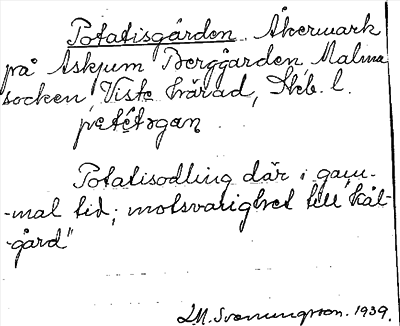 Potatisgården. Åkermark
på Askjum Berggården Malma
socken, Viste härad, Skb. l.
Potatisodling där i gam-
-mal tid; motsvarighet till "kål-
-gård"
L.M. Svenungsson. 1939.